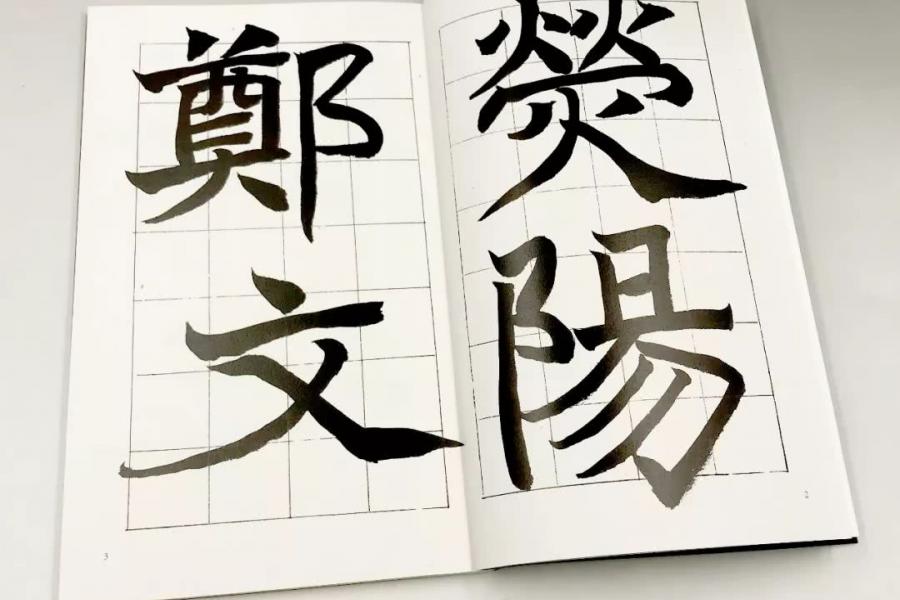 熒陽
2
鄭文
3